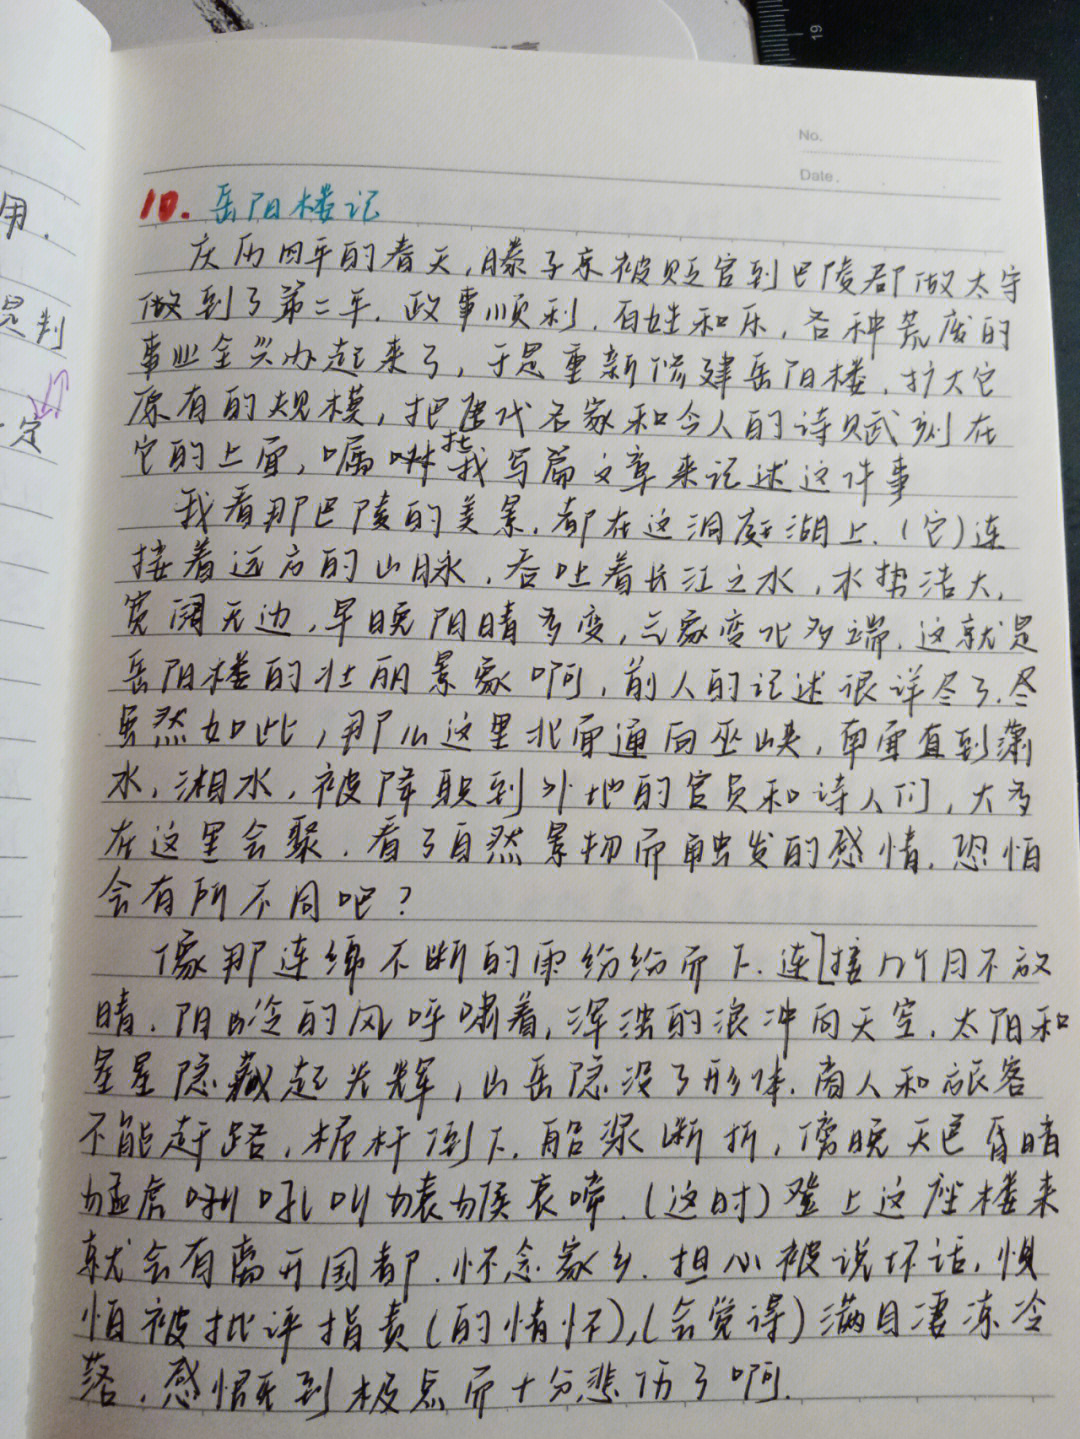 用.
是判
一定
19
No.
Date.
10. 岳阳楼记
庆历四年的春天,滕子京被贬官到巴陵郡做太守
做到了第二年.政事顺利.百姓和乐,各种荒废的
事业全兴办起来了,于是重新修建岳阳楼.扩大它
原有的规模,把唐代名家和今人的诗赋刻在
它的上面,嘱托我写篇文章来记述这件事
我看那巴陵的美景.都在这洞庭湖上.(它)连
接着远方的山脉,吞吐着长江之水,水势浩大,
宽阔无边,早晚阴晴多变,气象变化多端.这就是
岳阳楼的壮丽景象啊,前人的记述很详尽了.尽
虽然如此,那么这里北面通向巫峡,南面直到潇
水,湘水,被降职到外地的官员和诗人们,大多
在这里会聚.看了自然景物而触发的感情.恐怕
会有所不同吧?
像那连绵不断的雨纷纷而下.连接几个月不放
晴.阴冷的风呼啸着,浑浊的浪冲向天空.太阳和
星星隐藏起光辉,山岳隐没了形体.商人和旅客
不能赶路,桅杆倒下.船桨断折,傍晚天色昏暗
猛虎吼叫猿猴哀啼.(这时)登上这座楼来
就会有离开国都.怀念家乡.担心被说坏话,惧
怕被批评指责(的情怀),(会觉得)满目凄冻冷
落.感慨到极点而十分悲伤了啊.